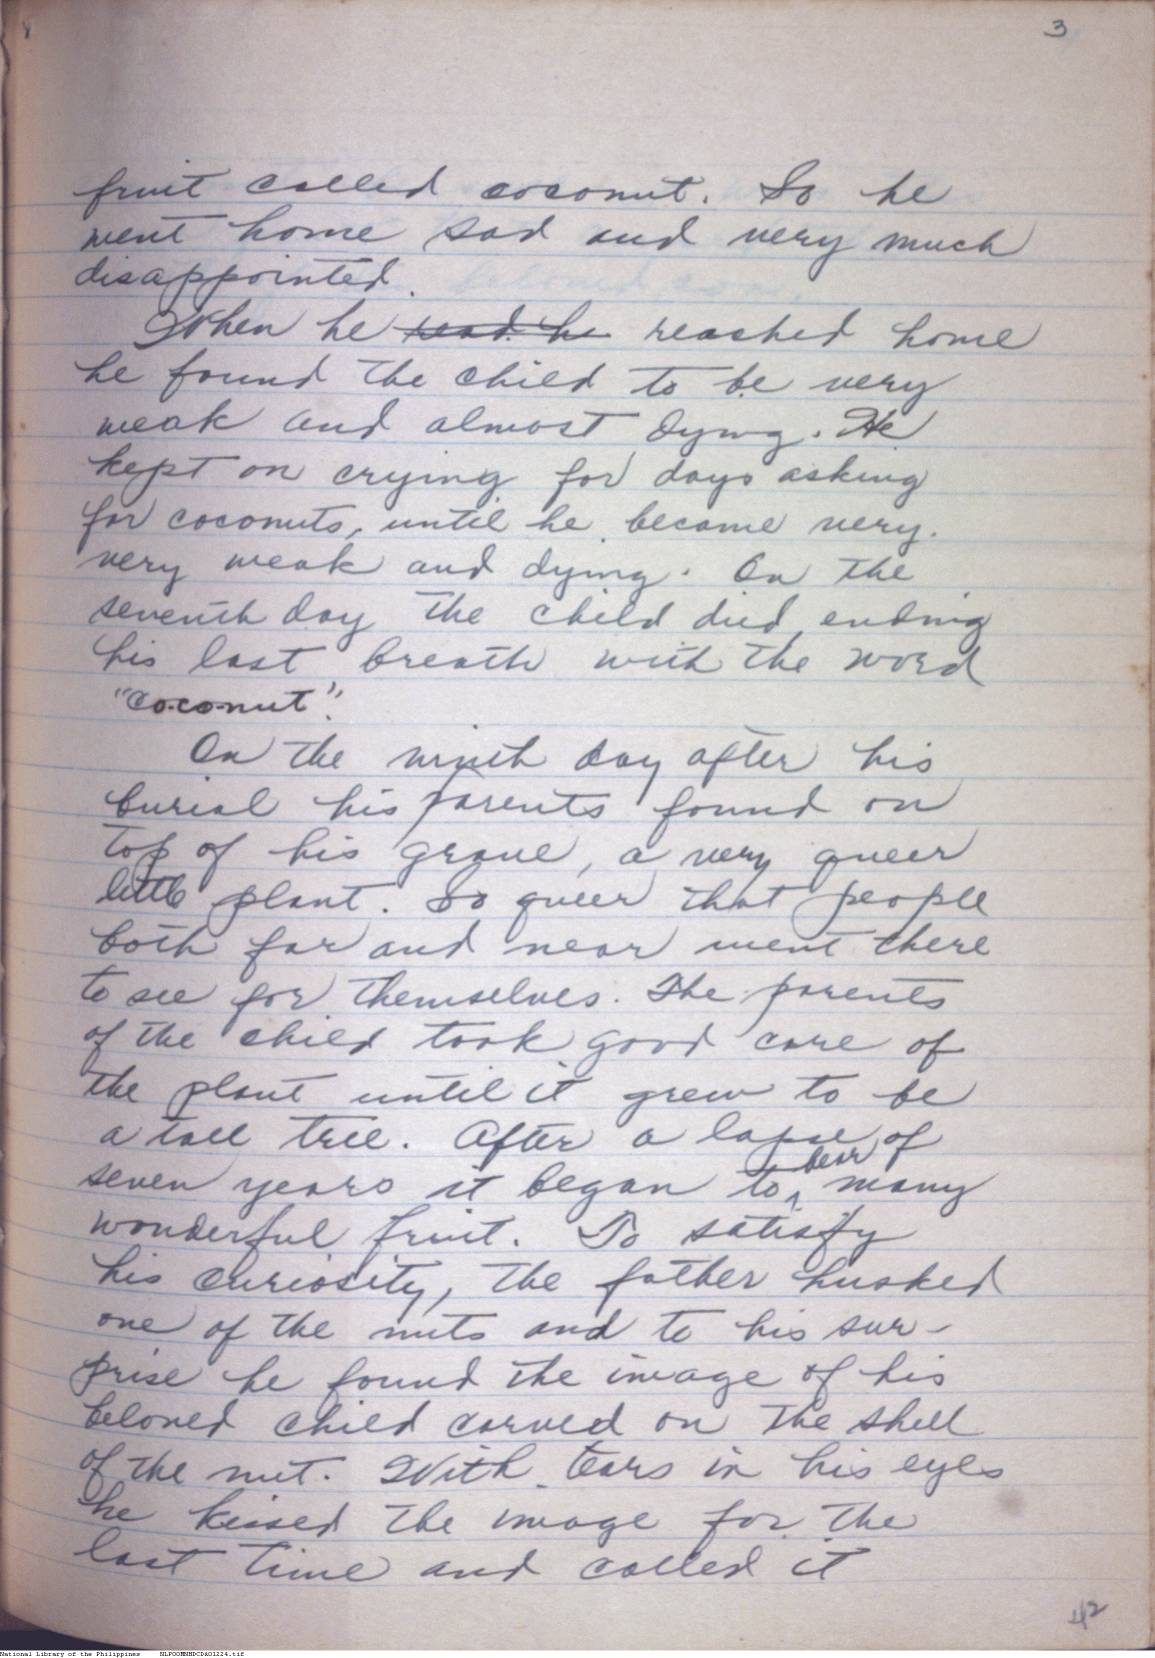 3
fruit called coconut. So he
went home sad and very much
disappointed.
When he read he reached home
he found the child to be very
weak and almost dying. He
kept on crying for days asking
for coconuts, until he became very.
very weak and dying. On the
seventh day the child died ending
his last breath with the word
"co-co-nut".
On the ninth day after his
burial his parents found on
top of his grave, a very queer
little plant. So queer that people
both far and near went there
to see for themselves. The parents
of the child took good care of
the plant until it grew to be
a tall tree. After a lapse of
seven years it began to bear many
wonderful fruit. To satisfy
his curiosity, the father husked
one of the nuts and to his sur-
prise he found the image of his
beloved child carved on the shell
of the nut. With tears in his eyes
he kissed the image for the
last time and called it
42
National Library of the Philippines